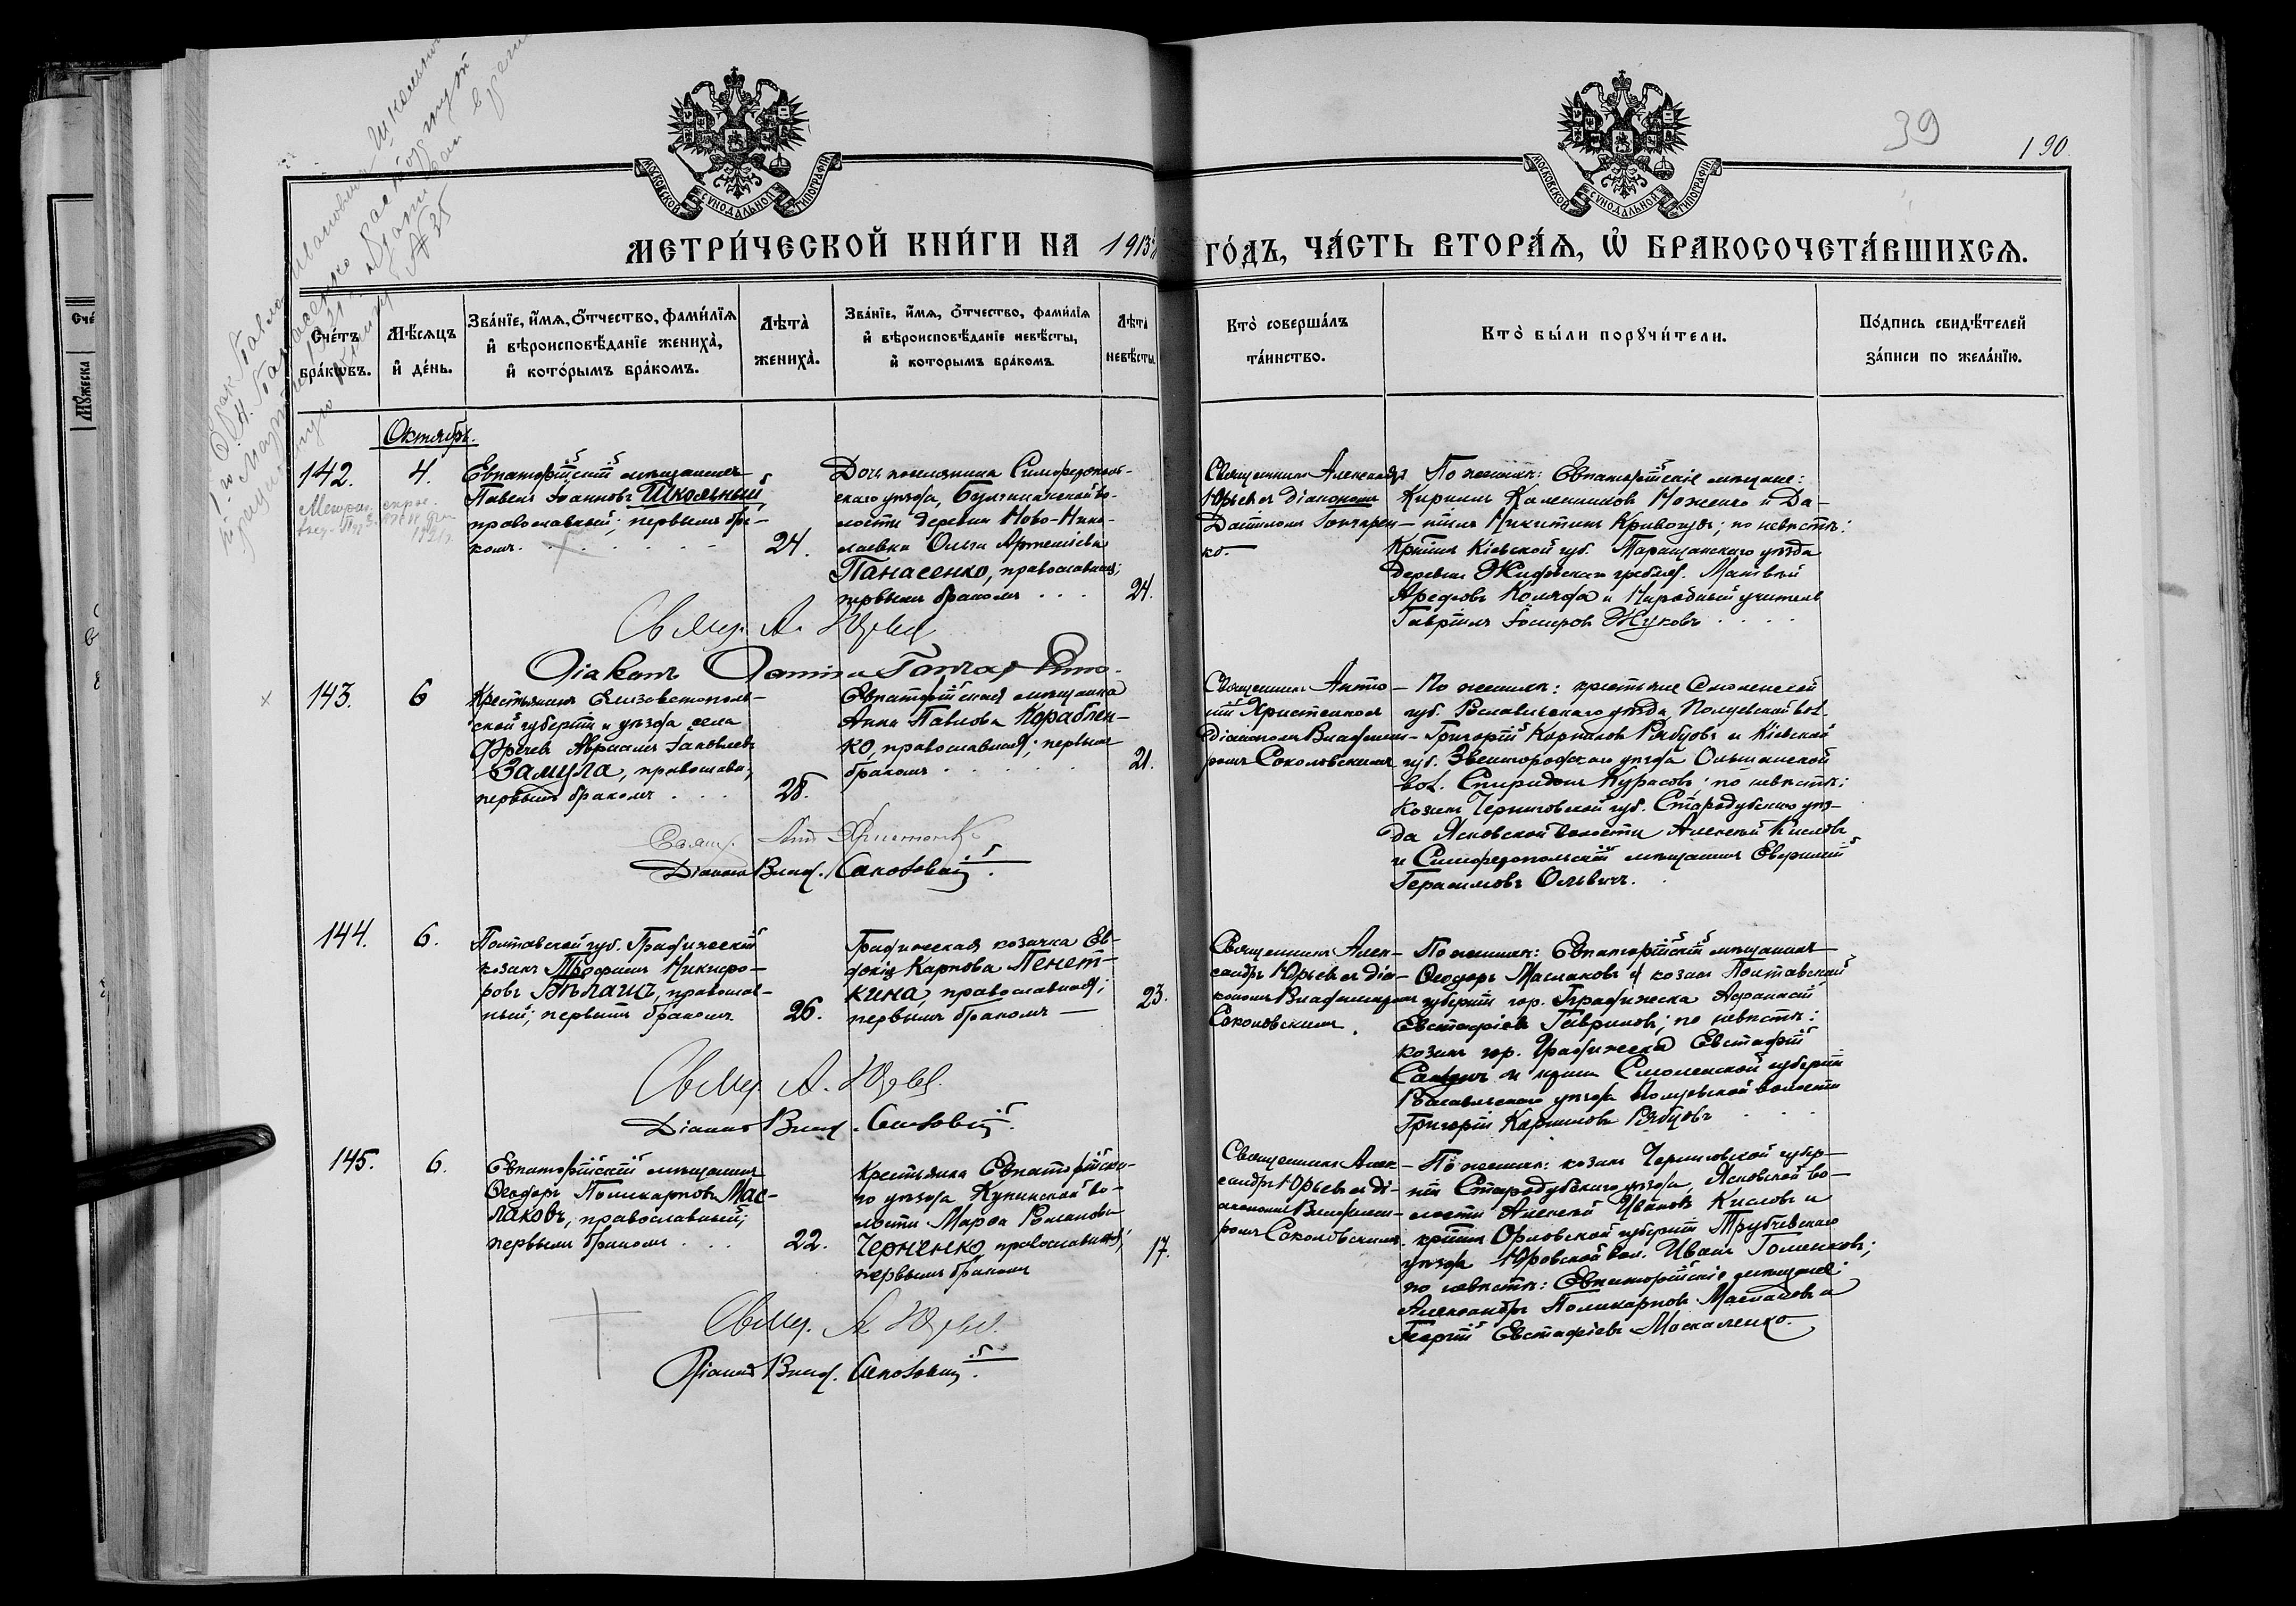 39
190.
МОСКОВСКОЙ СѴНОДАЛЬНОЙ ТИПОГРАФІИ
МОСКОВСКОЙ СѴНОДАЛЬНОЙ ТИПОГРАФІИ
МЕТРИ́ЧЕСКОЙ КНИ́ГИ НА 1913й ГО́ДЪ, ЧА́СТЬ ВТОРА́Ѧ, Ѡ҆ БРАКОСОЧЕТА́ВШИХСѦ.
Сче́тъ бра́кѡвъ.
Мѣ́сяцъ и҆ де́нь.
Зва́нїе, и҆́мѧ, ѻ҆́тчество, фами́лїѧ и҆ вѣроисповѣ́данїе жениха̀, и҆ кото́рымъ бра́комъ.
Лѣта̀ жениха̀.
Зва́нїе, и҆́мѧ, ѻ҆́тчество, фами́лїѧ и҆ вѣроисповѣ́данїе невѣ́сты, и҆ кото́рымъ бра́комъ.
Лѣта̀ невѣ́сты.
Кто̀ соверша́лъ та́инство.
Кто̀ бы́ли порꙋчи́тели.
По́дпись свидѣ́телей за́писи по жела́нїю.
Октябрь.
142.
4.
Евпаторійскій мѣщанинъ
Павелъ Іоанновъ Школьный,
православный; первымъ бра-
комъ.
24.
Дочь поселянина Симферополь-
скаго уѣзда, Булганакской во-
лости деревни Ново-Нико-
лаевки Ольга Артемьева
Панасенко, православная;
первымъ бракомъ . . .
24.
Священникъ Александръ
Юрьевъ съ діакономъ
Даніиломъ Гончарен-
ко.
По женихѣ: Евпаторійскіе мѣщане:
Кириллъ Калинниковъ Ноженко и Да-
ніилъ Никитинъ Кривогузъ; по невѣстѣ:
Кр-нинъ Кіевской губ. Таращанскаго уѣзда
деревни Жидовская гребля. Матвѣй
Арефовъ Коляда и Народный учитель
Гавріилъ Іосифовъ Жуковъ . . . .
Свящ. А. Юрьевъ
Діаконъ Даніилъ Гончаренко.
143.
6
Крестьянинъ Елисаветополь-
ской губерніи и уѣзда села
Авраамъ Іаковлевъ
Замула, правосл.,
первымъ бракомъ . . .
28.
Евпаторійская мѣщанка
Анна Павлова Кораблен-
ко, православная; первымъ
бракомъ . . . . . .
21.
Священникъ Анто-
ній
Діакономъ Владими-
ромъ Соколовскимъ
По женихѣ: крестьяне Смоленской
губ. Рославльскаго уѣзда, вол.
Григорій Карповъ Рябцовъ и Кіевской
губ. Звенигородскаго уѣзда Ольшанской
вол. Спиридонъ Курасовъ; по невѣстѣ:
козакъ Черниговской губ. Стародубскаго уѣз-
да Ясновской волости Алексѣй Кисловъ
и Симферопольскій мѣщанинъ
Герасимовъ
Свящ. Ант.
Діаконъ Влад. Соколовскій.
144.
6.
Полтавской губ. Градижскій
козакъ Трофимъ Никифо-
ровъ Бѣлашъ, православ-
ный; первымъ бракомъ
26.
Градижская козачка Ев-
докія Карпова Пенет-
кина, православная;
первымъ бракомъ —
23.
Священникъ Алек-
сандръ Юрьевъ съ діа-
кономъ Владиміромъ
Соколовскимъ.
По женихѣ: Евпаторійскій мѣщанинъ
Ѳеодоръ Маслаковъ и козакъ Полтавской
губерніи гор. Градижска Аѳанасій
Евстафіевъ Гавриловъ; по невѣстѣ:
козакъ гор. Градижска Евстафій
и кр-нинъ Смоленской губерніи
Рославльскаго уѣзда волости
Григорій Карповъ Рябцовъ . . .
Свящ. А. Юрьевъ.
Діаконъ Влад. Соколовскій.
145.
6.
Евпаторійскій мѣщанинъ
Ѳеодоръ Поликарповъ Мас-
лаковъ, православный;
первымъ бракомъ . . .
22.
Крестьянка Евпаторійска-
го уѣзда Кунанской во-
лости Марѳа Романова
Черненко, православная;
первымъ бракомъ
17.
Священникъ Алек-
сандръ Юрьевъ съ ді-
акономъ Владими-
ромъ Соколовскимъ.
По женихѣ: козакъ Черниговской губер-
ніи Стародубскаго уѣзда, Ясновской во-
лости Алексѣй Ивановъ Кисловъ и
кр-нинъ Орловской губерніи Трубчевскаго
уѣзда Юровской вол. Иванъ Голенковъ;
по невѣстѣ: Евпаторійскіе мѣщане:
Александръ Поликарповъ Маслаковъ и
Георгій Евстафіевъ Москаленко.
Свящ. А. Юрьевъ.
Діаконъ Влад. Соколовскій.